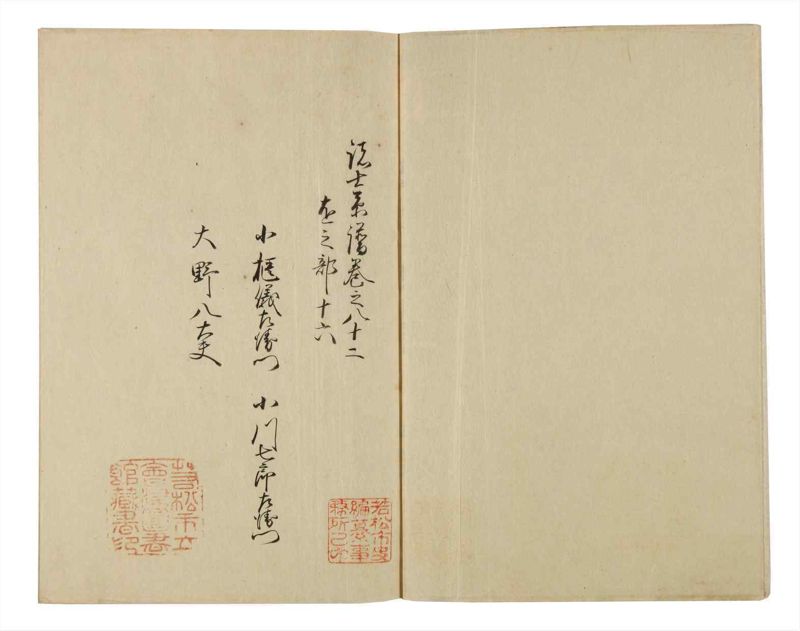 諸士系譜巻之八十二
を之部十六
小櫃儀左衛門 小川七郎左衛門
大野八太夫
若松市史
編纂事
務所之印
若松市立
會津圖書
館藏書印